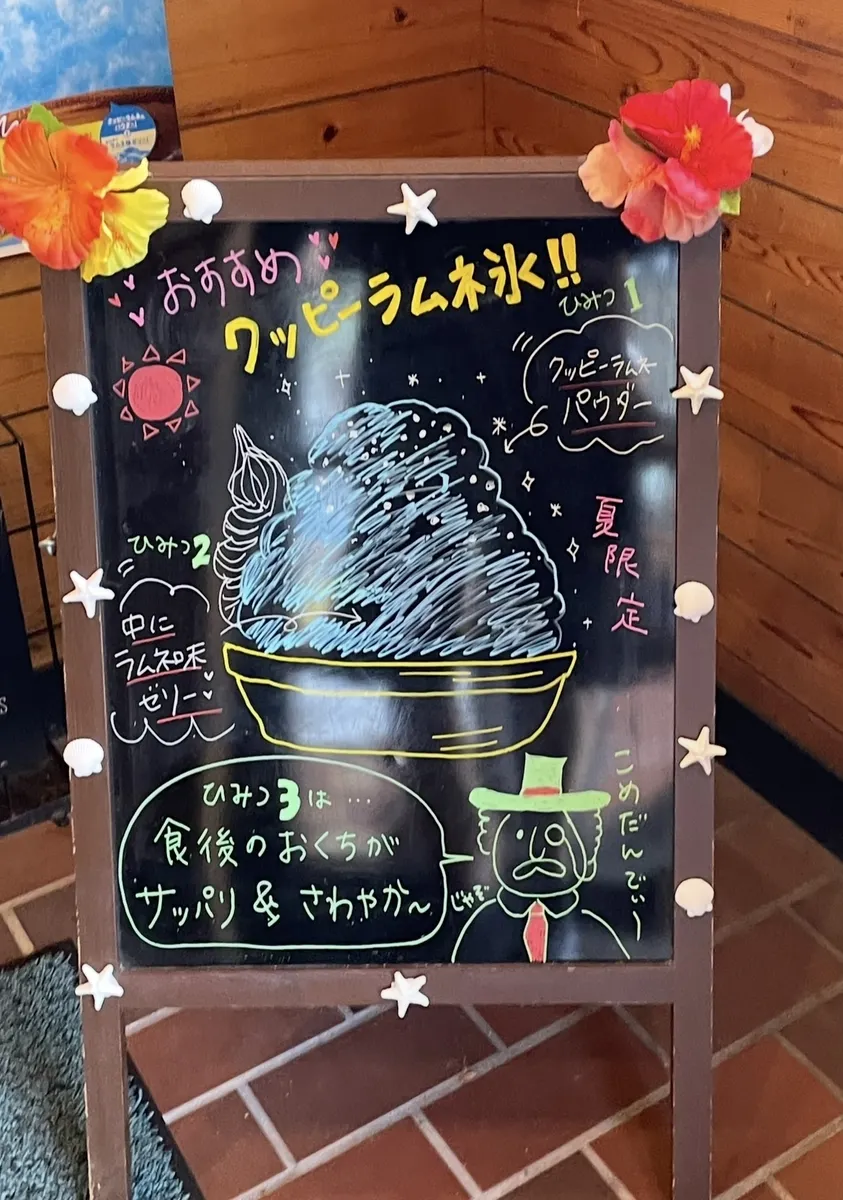 おすすめ
クッピーラムネ氷!!
ひみつ1
クッピーラムネ
パウダー
夏限定
ひみつ2
中に
ラムネ味
ゼリー
ひみつ3は…
食後のおくちが
サッパリ & さわやか〜
じゃぞ
こめだんでぃー